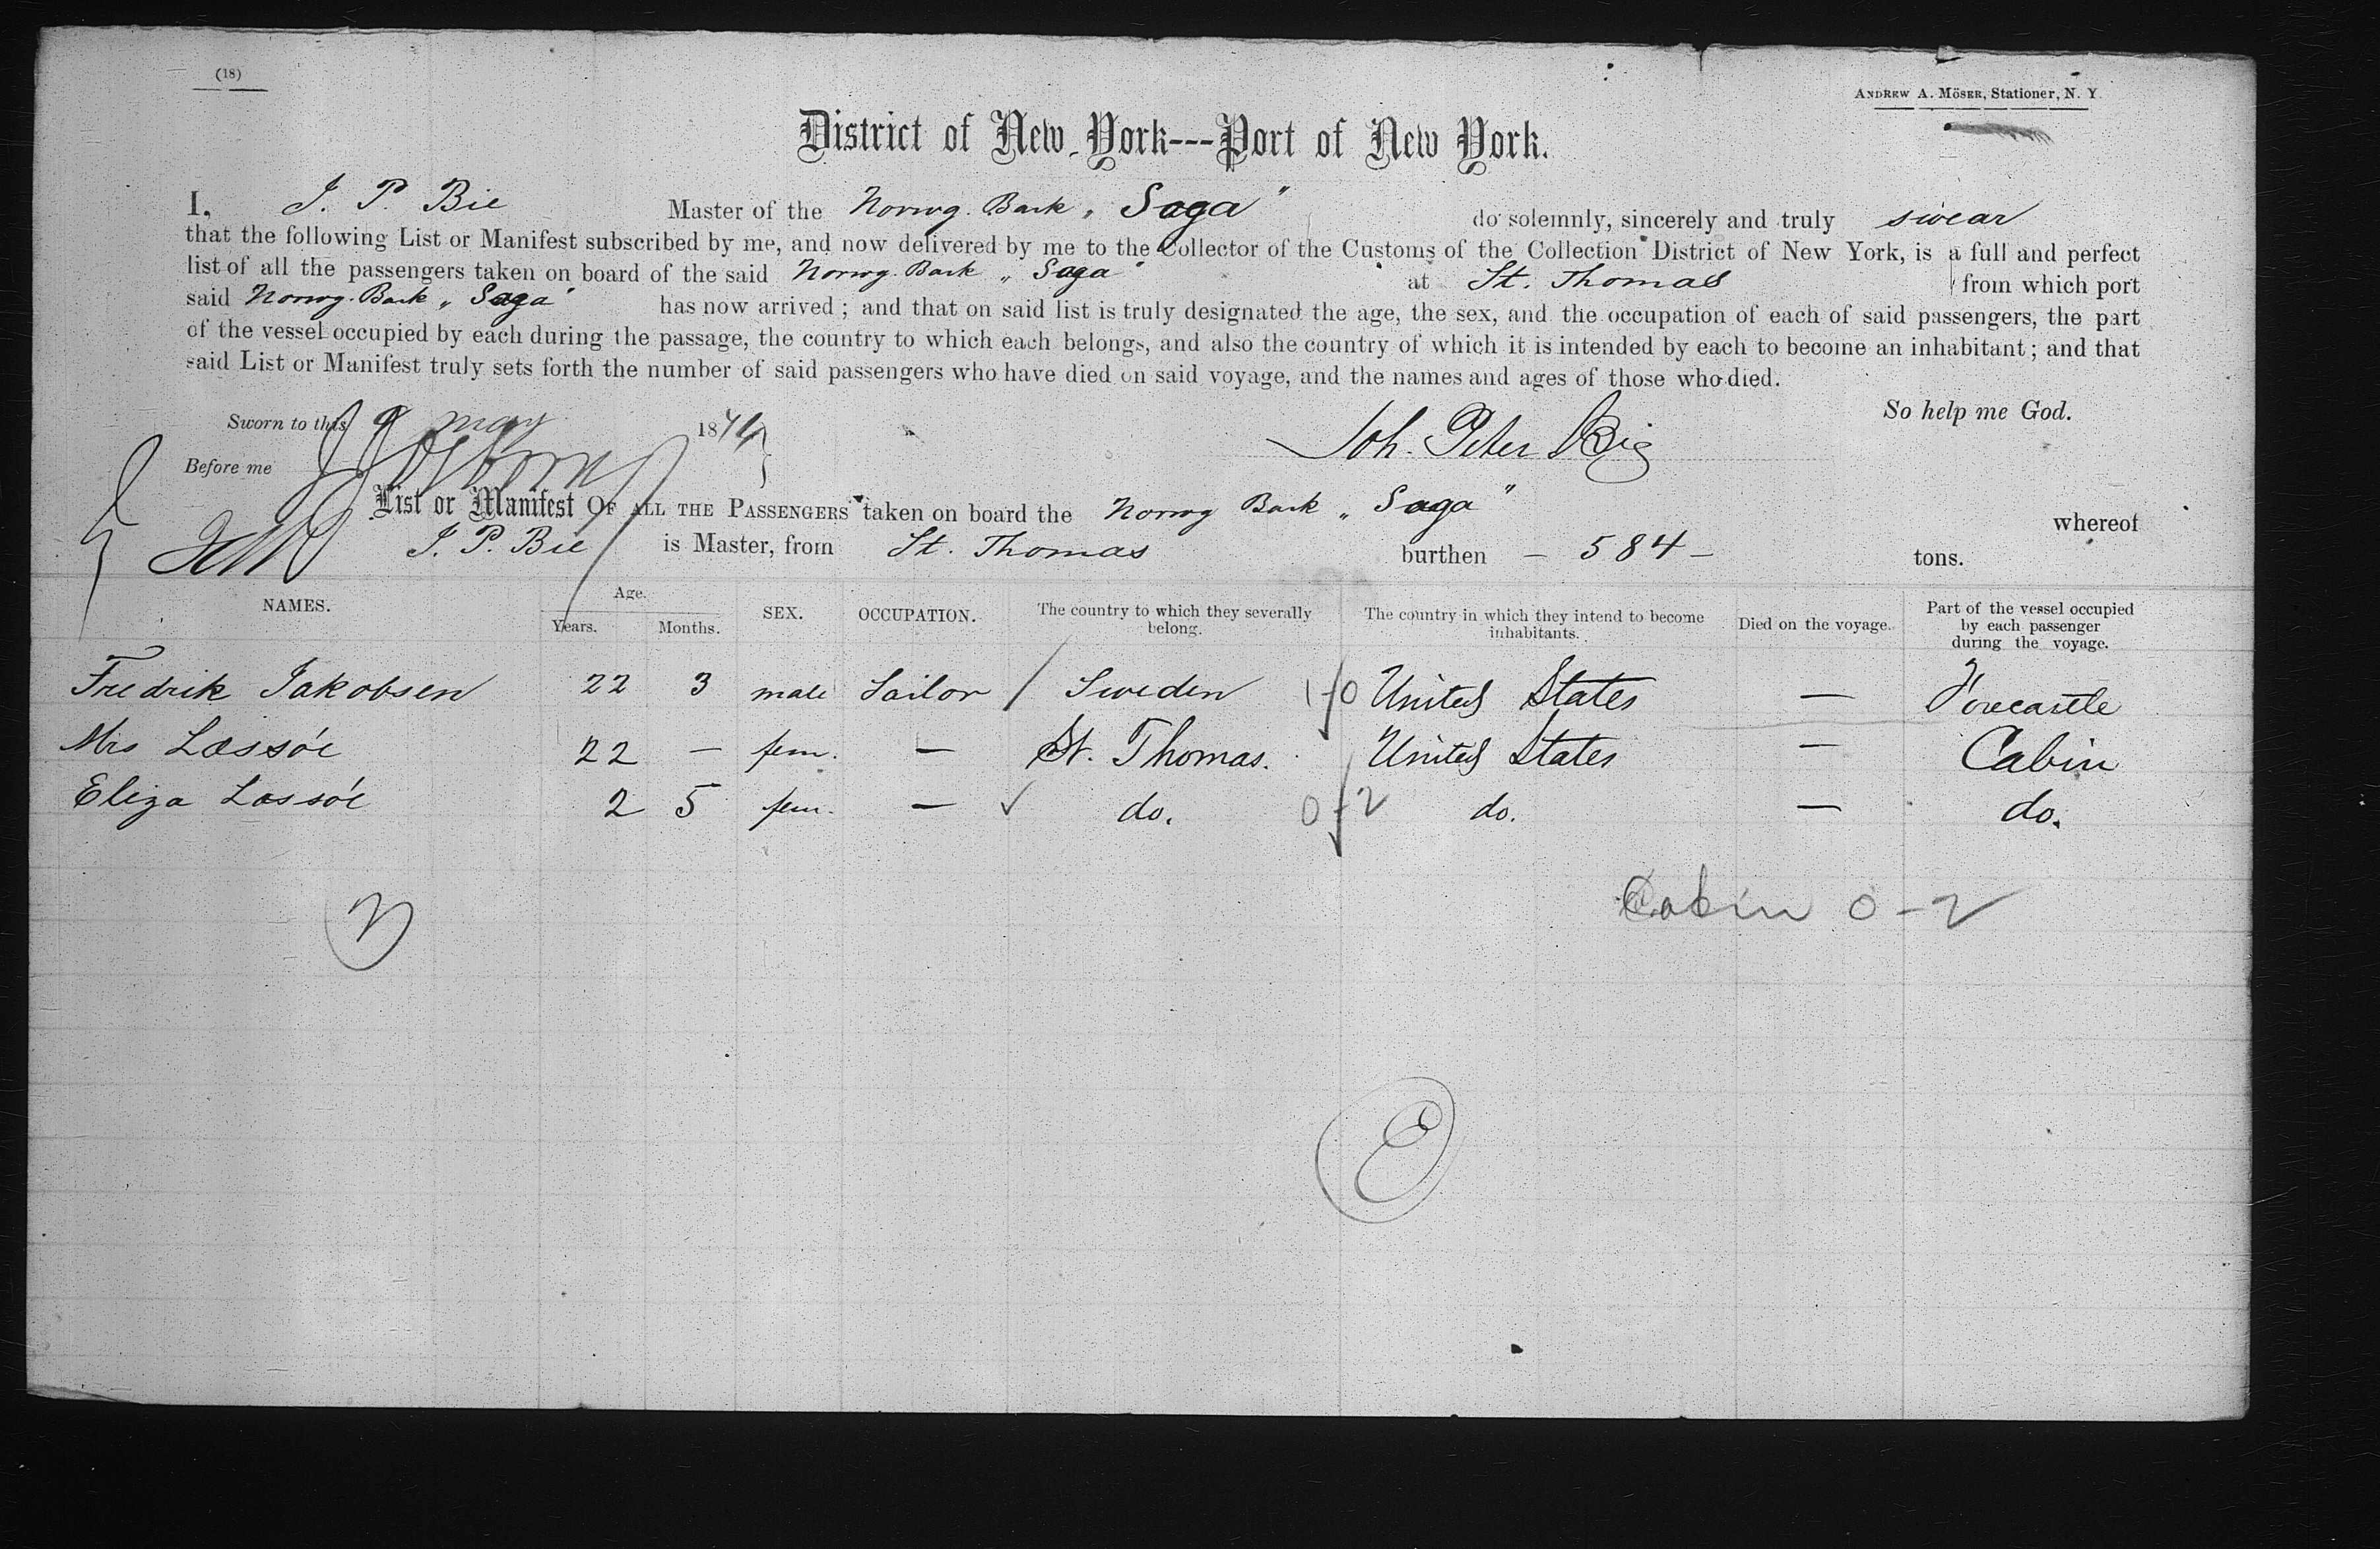 (18)
ANDREW A. MÖSER, Stationer, N. Y.
District of New York---Port of New York.
I, J. P. Bie Master of the Norwg. Bark „Saga" do solemnly, sincerely and truly swear
that the following List or Manifest subscribed by me, and now delivered by me to the Collector of the Customs of the Collection District of New York, is a full and perfect
list of all the passengers taken on board of the said Norwg. Bark „Saga" at St. Thomas from which port
said Norwg. Bark „Saga" has now arrived ; and that on said list is truly designated the age, the sex, and the occupation of each of said passengers, the part
of the vessel occupied by each during the passage, the country to which each belongs, and also the country of which it is intended by each to become an inhabitant ; and that
said List or Manifest truly sets forth the number of said passengers who have died on said voyage, and the names and ages of those who died.
So help me God.
Sworn to this 9 may 1874
Joh. Peter Bie
Before me
List or Manifest OF ALL THE PASSENGERS taken on board the Norwg Bark „Saga" whereof
J. P. Bie is Master, from St. Thomas burthen – 584 – tons.
NAMES. Age. Years. Months. SEX. OCCUPATION. The country to which they severally belong. The country in which they intend to become inhabitants. Died on the voyage. Part of the vessel occupied by each passenger during the voyage.
Fredrik Jakobsen 22 3 male Sailor / Sweden 1-0 United States — Forecastle
Mrs Læssóe 22 — fem. — St. Thomas. United States — Cabin
Eliza Læssóe 2 5 fem. — ✓ do. 0-2 do. — do.
Cabin 0-2
E